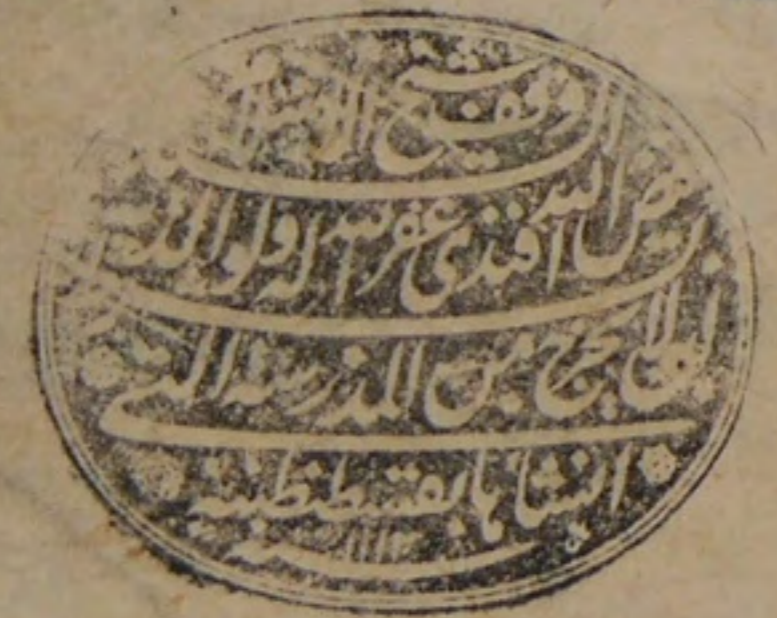 وقف شيخ الاسلام
فيض الله افندى غفر الله له ولوالديه
ان لا يخرج من المدرسة التى
انشأها بقسطنطنية
سنة ١١١٢